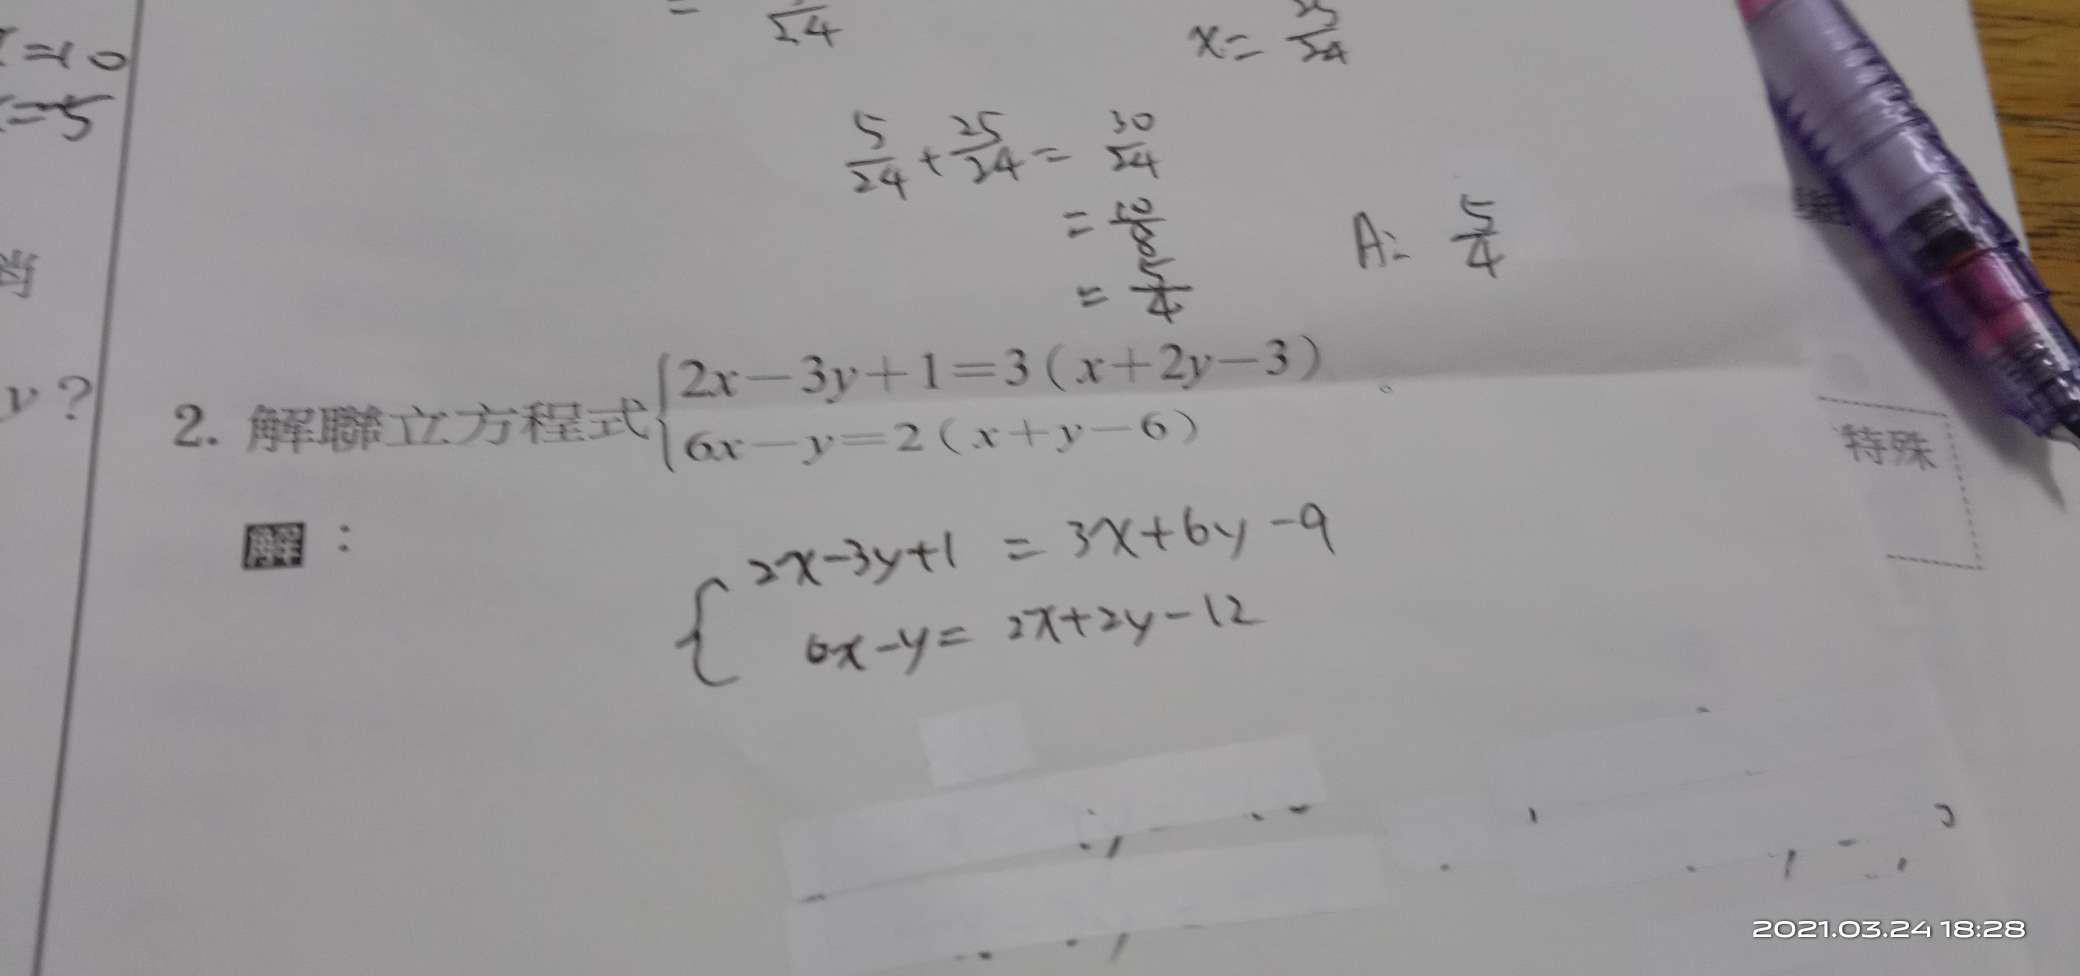 =10
=5
= 24
x= 25/24
5/24 + 25/24 = 30/24
= 10/8
= 5/4
A: 5/4
y?
2. 解聯立方程式 { 2x-3y+1=3(x+2y-3)
6x-y=2(x+y-6) 。
特殊
解：
{ 2x-3y+1 = 3x+6y-9
6x-y= 2x+2y-12
2021.03.24 18:28